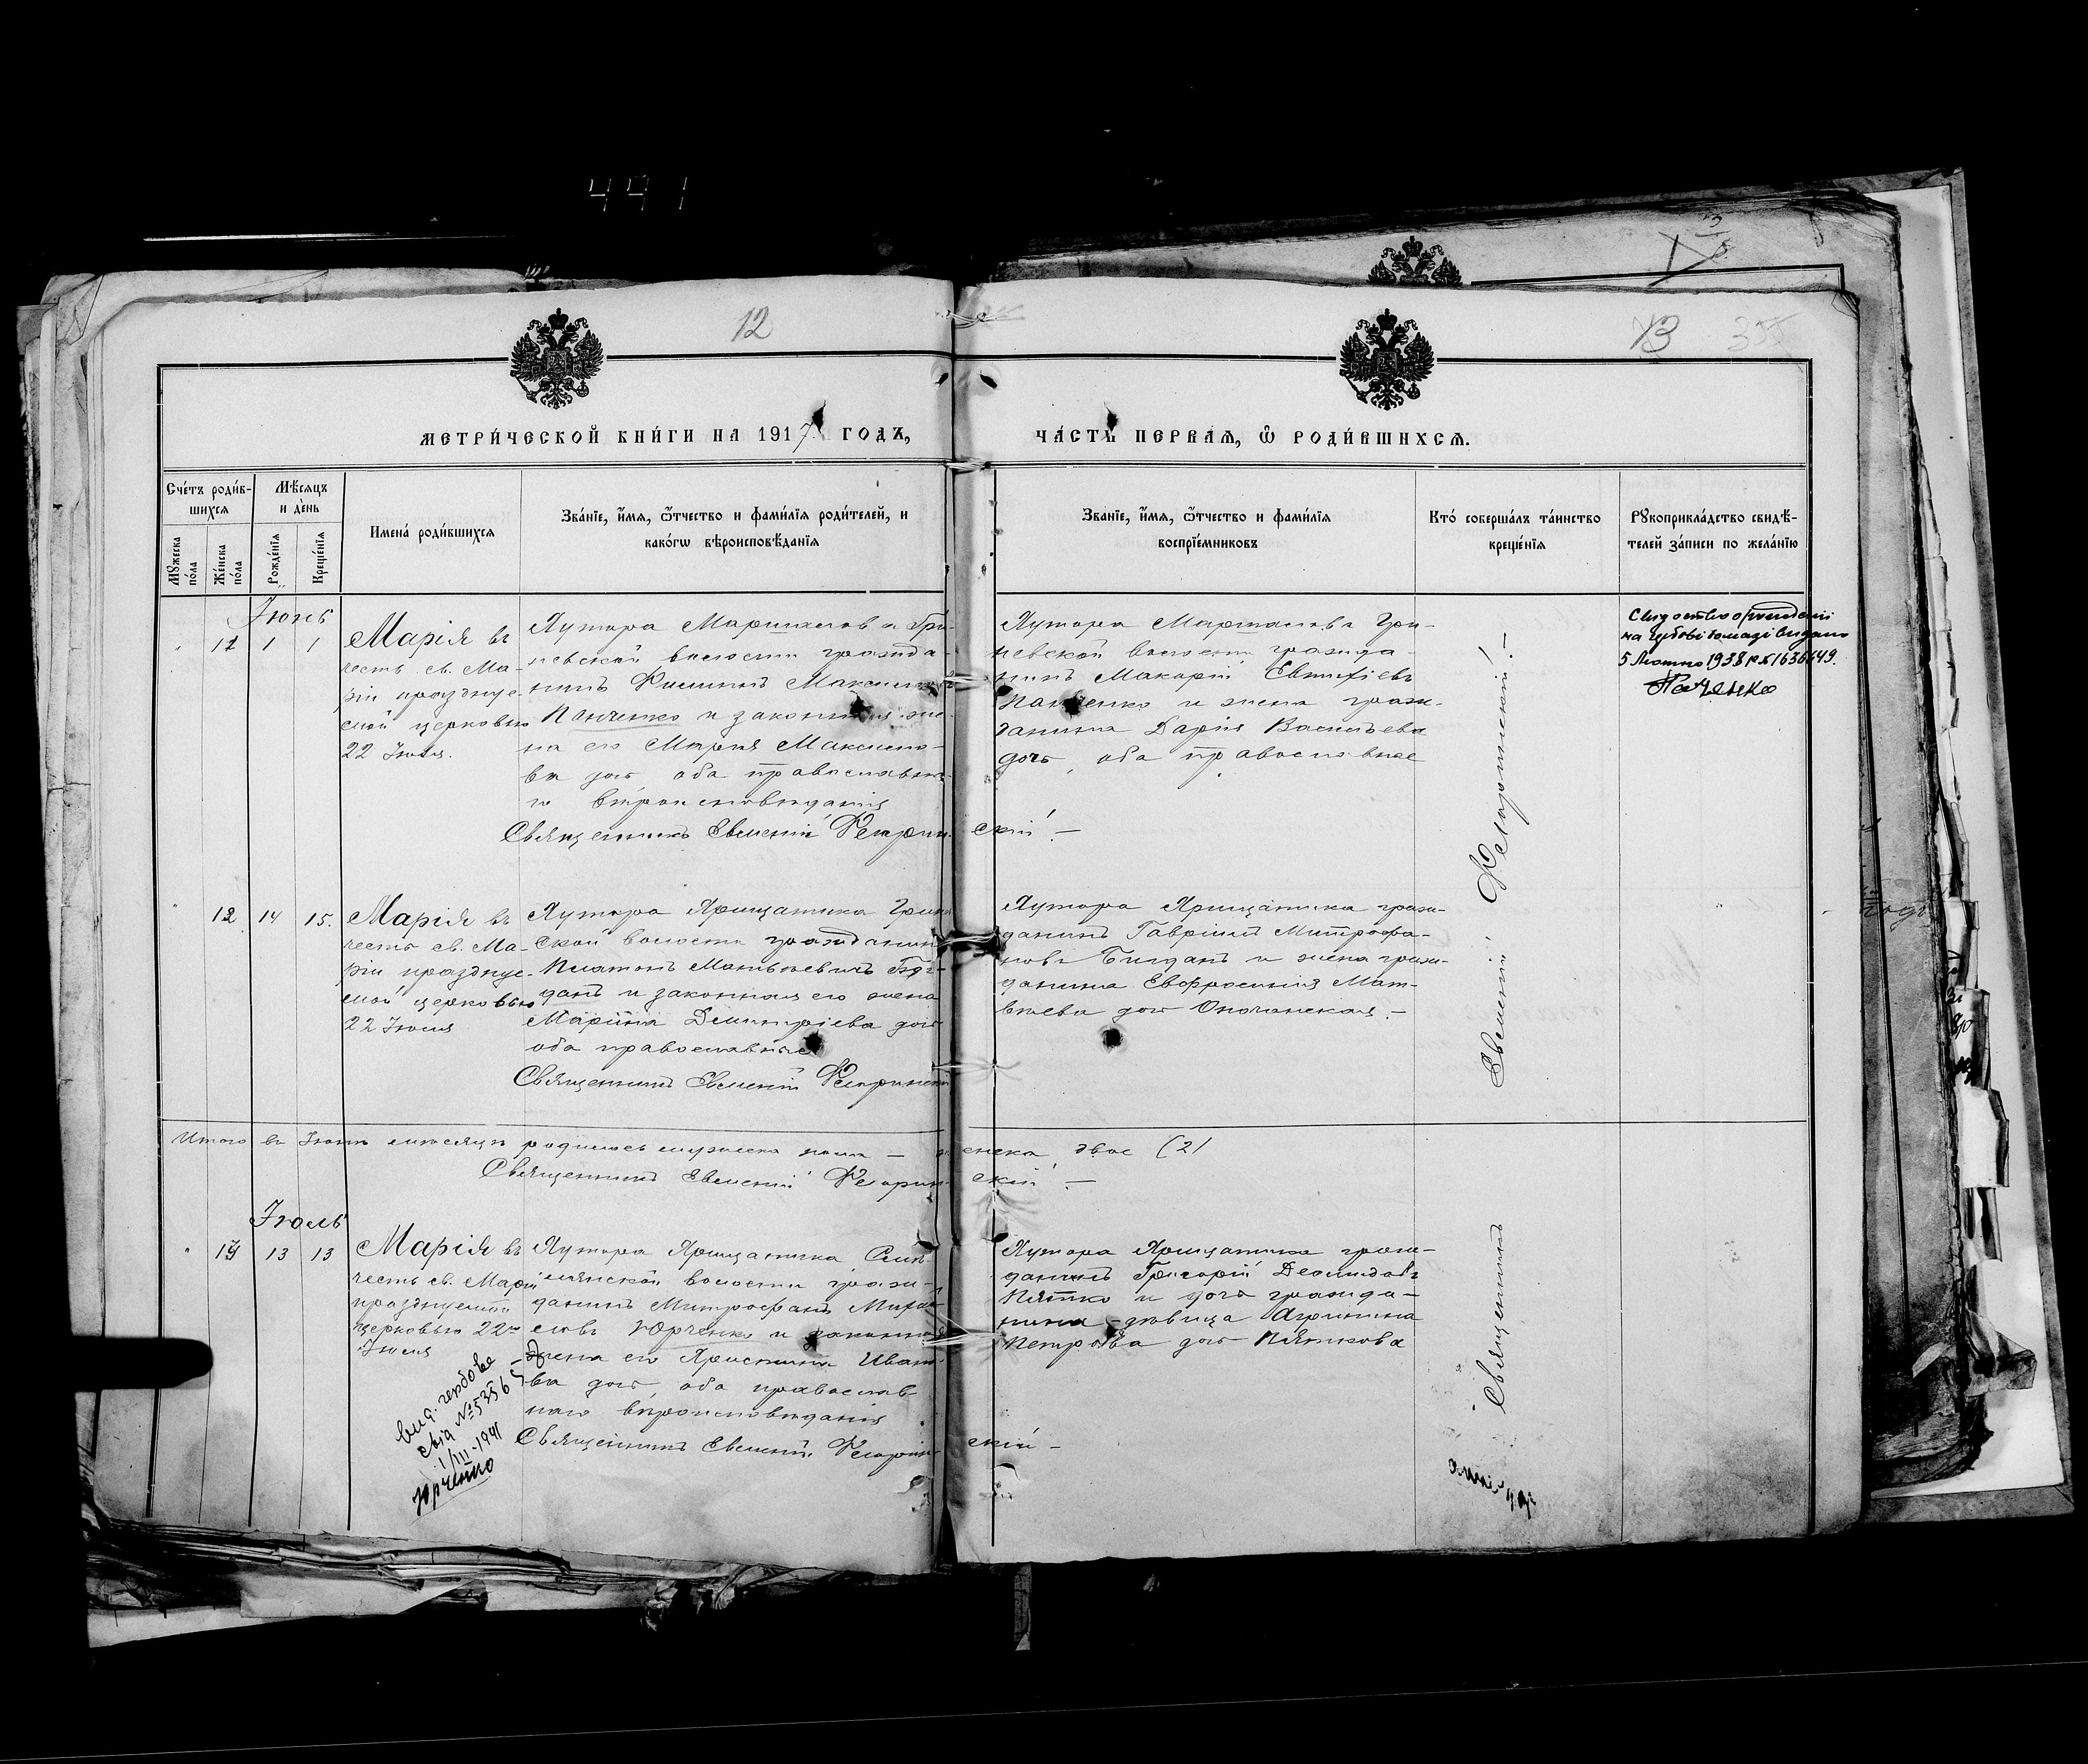 441
12
13
МЕТРИ́ЧЕСКОЙ КНИ́ГИ НА 1917 ГОДЪ,
ЧА́СТЬ ПЕРВАѦ, Ѽ РОДИ́ВШИХСѦ.
Сче́тъ роди́в-
шихсѧ
Мѣ́сѧцъ
и де́нь
Мꙋ́жеска
по́ла
Же́нска
по́ла
Рожде́нїѧ
Креще́нїѧ
Имена́ роди́вшихсѧ
Зва́нїе, и҆́мѧ, ѻ҆́тчество и фами́лїѧ роди́телей, и
како́гѡ вѣроисповѣ́данїѧ
Зва́нїе, и҆́мѧ, ѻ҆́тчество и фами́лїѧ
воспрїе́мниковъ
Кто́ соверша́лъ та́инство
креще́нїѧ
Рꙋкоприкла́дство свидѣ́-
телей за́писи по жела́нїю
Іюнь
11 1 1
Марія въ
честь св. Ма-
ріи празднуе-
мой церковью
22 Іюля.
Хутора Марталова Гри-
невской волости гражда-
нинъ Филиппъ Максимовъ
Панченко и законная же-
на его Марія Максимо-
ва дочь, оба православна-
го вѣроисповѣданія
Священникъ Евмений
скій. —
Хутора Марталова Гри-
невской волости гражда-
нинъ Макарій Евтифіевъ
Панченко и жена граж-
данина Дарія Васильева
дочь, оба православные
5 Лютого 1938 р. № 1636449.
Панченко
12 14 15.
Марія въ
честь св. Ма-
ріи празднуе-
мой церковью
22 Іюля
Хутора Хрищатика Гринев
ской волости гражданинъ
Платонъ Матвѣевичъ
данъ и законная его жена
Марина Димитріева дочь
оба православные
Священникъ Евмений
Хутора Хрищатика граж-
данинъ Гавріилъ Митрофа-
новъ Билданъ и жена граж-
данина Евфросинія Мат-
вѣева дочь
Итого въ Іюнѣ мѣсяцѣ родилось мужеска пола — женска двое (2)
Священникъ Евмений
скій —
Іюль
13 13 13
Марія въ
честь св. Маріи
празднуемой
церковью 22го
Іюля
Хутора Хрищатика
волости граж-
данинъ Митрофанъ Михаи-
ловъ Юрченко и законная
жена его Христина Ивано-
ва дочь, оба православ-
наго вѣроисповѣданія
Священникъ Евмений
скій —
Хутора Хрищатика граж-
данинъ Григорій
Пятко и дочь гражда-
нина — дѣвица Агрипина
Петрова дочь Пяткова
Священникъ Евмений
вид. гербове
1/III-1941
Юрченко